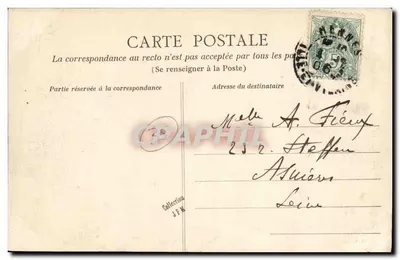 CARTE POSTALE
La correspondance au recto n'est pas acceptée par tous les pa
(Se renseigner à la Poste)
Partie réservée à la correspondance
Adresse du destinataire
RENNES
ILLE-ET-VILAINE
Melle A. Fieux
23 r. Steffen
Asnières
Seine
Collection
J F M
CPAPHIL